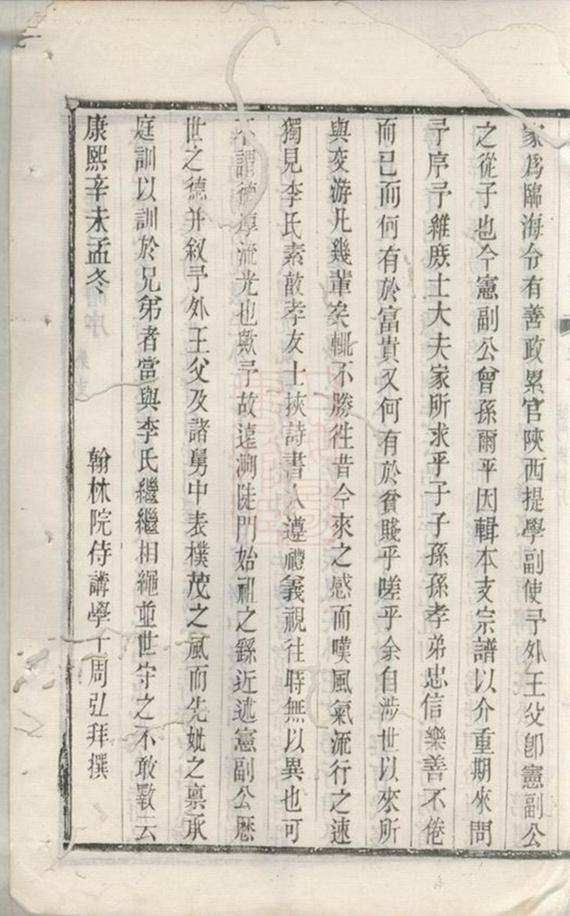 家爲臨海令有善政累官陝西提學副使予外王父卽憲副公
之從子也今憲副公曾孫爾平因輯本支宗譜以介重期來問
予序予雖庶士大夫家所求乎子子孫孫孝弟忠信樂善不倦
而已而何有於富貴又何有於貧賤乎嗟乎余自涉世以來所
與交游凡幾輩矣輒不勝徃昔今來之感而嘆風氣流行之速
獨見李氏素敵孝友士挾詩書人遵禮義視往時無以異也可
不謂德厚流光也歟予故遠溯陡門始祖之繇近述憲副公歷
世之德并叙予外王父及諸舅中表樸茂之風而先妣之禀承
庭訓以訓於兄弟者當與李氏繼繼相繩並世守之不敢斁云
康熙辛未孟冬 翰林院侍講學士周弘拜撰